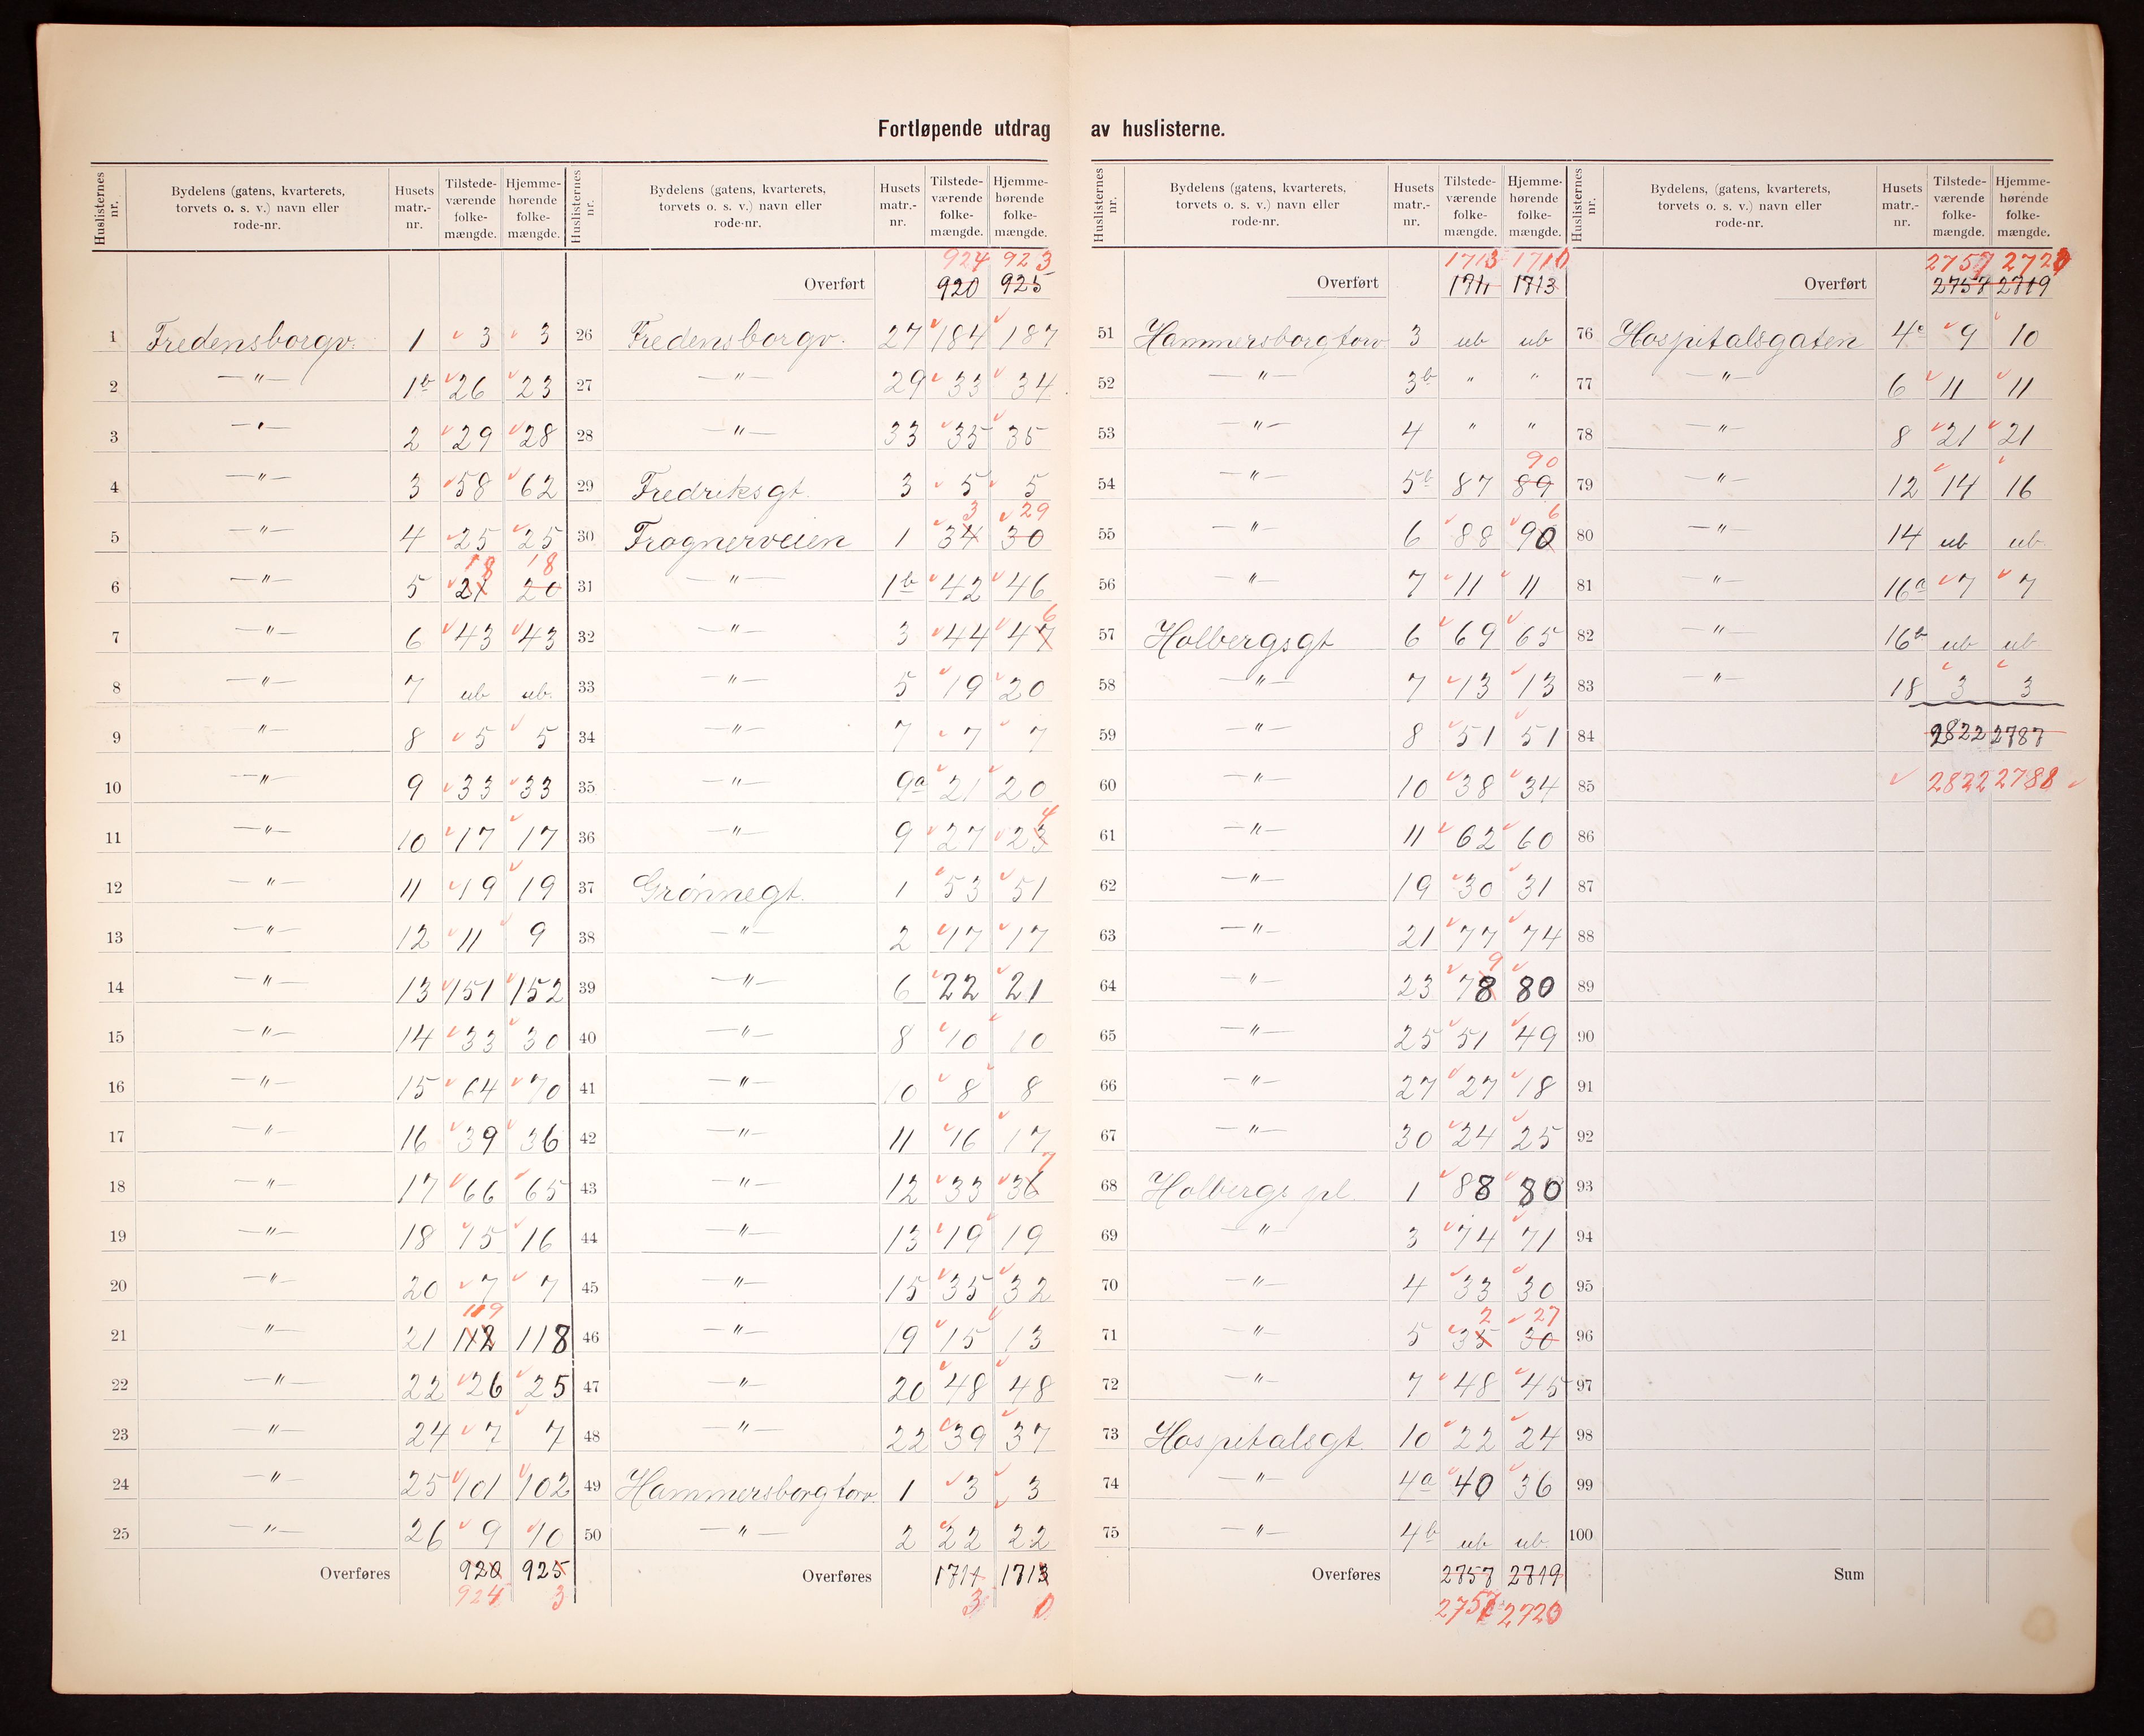 Fortløpende utdrag av huslisterne.
Huslisternes nr. Bydelens (gatens, kvarterets, torvets o. s. v.) navn eller rode-nr. Husets matr.-nr. Tilstede-værende folke-mængde. Hjemme-hørende folke-mængde.
1 Fredensborgv. 1 3 3
2 —"— 1b 26 23
3 —"— 2 29 28
4 —"— 3 58 62
5 —"— 4 25 25
18 18
6 —"— 5 21 20
7 —"— 6 43 43
8 —"— 7 ub ub.
9 —"— 8 5 5
10 —"— 9 33 33
11 —"— 10 17 17
12 —"— 11 19 19
13 —"— 12 11 9
14 —"— 13 151 152
15 —"— 14 33 30
16 —"— 15 64 70
17 —"— 16 39 36
18 —"— 17 66 65
19 —"— 18 15 16
20 —"— 20 7 7
119
21 —"— 21 112 118
22 —"— 22 26 25
23 —"— 24 7 7
24 —"— 25 101 102
25 —"— 26 9 10
Overføres 920 925
924 3
Huslisternes nr. Bydelens (gatens, kvarterets, torvets o. s. v.) navn eller rode-nr. Husets matr.-nr. Tilstede-værende folke-mængde. Hjemme-hørende folke-mængde.
924 923
Overført 920 925
26 Fredensborgv. 27 184 187
27 —"— 29 33 34
28 —"— 33 35 35
29 Fredriksgt. 3 5 5
3 29
30 Frognerveien 1 34 30
31 —"— 1b 42 46
6
32 —"— 3 44 47
33 —"— 5 19 20
34 —"— 7 7 7
35 —"— 9a 21 20
4
36 —"— 9 27 23
37 Grønnegt. 1 53 51
38 —"— 2 17 17
39 —"— 6 22 21
40 —"— 8 10 10
41 —"— 10 8 8
42 —"— 11 16 17
7
43 —"— 12 33 36
44 —"— 13 19 19
45 —"— 15 35 32
46 —"— 19 15 13
47 —"— 20 48 48
48 —"— 22 39 37
49 Hammersborg torv. 1 3 3
50 —"— 2 22 22
Overføres 1711 1713
3 0
Huslisternes nr. Bydelens (gatens, kvarterets, torvets o. s. v.) navn eller rode-nr. Husets matr.-nr. Tilstede-værende folke-mængde. Hjemme-hørende folke-mængde.
1713 1710
Overført 1711 1713
51 Hammersborg torv 3 ub ub
52 —"— 3b " "
53 —"— 4 " "
90
54 —"— 5b 87 89
6
55 —"— 6 88 90
56 —"— 7 11 11
57 Holbergsgt 6 69 65
58 —"— 7 13 13
59 —"— 8 51 51
60 —"— 10 38 34
61 —"— 11 62 60
62 —"— 19 30 31
63 —"— 21 77 74
9
64 —"— 23 78 80
65 —"— 25 51 49
66 —"— 27 27 18
67 —"— 30 24 25
68 Holbergs pl. 1 88 80
69 —"— 3 74 71
70 —"— 4 33 30
2 27
71 —"— 5 35 30
72 —"— 7 48 45
73 Hospitalsgt. 10 22 24
74 —"— 4a 40 36
75 —"— 4b ub ub.
Overføres 2757 2719
2757 2720
Huslisternes nr. Bydelens, (gatens, kvarterets, torvets o. s. v.) navn eller rode-nr. Husets matr.-nr. Tilstede-værende folke-mængde. Hjemme-hørende folke-mængde.
2757 2720
Overført 2757 2719
76 Hospitalsgaten 4c 9 10
77 —"— 6 11 11
78 —"— 8 21 21
79 —"— 12 14 16
80 —"— 14 ub ub.
81 —"— 16a 7 7
82 —"— 16b ub ub
83 —"— 18 3 3
84 2822 2787
85 2822 2788
86
87
88
89
90
91
92
93
94
95
96
97
98
99
100
Sum